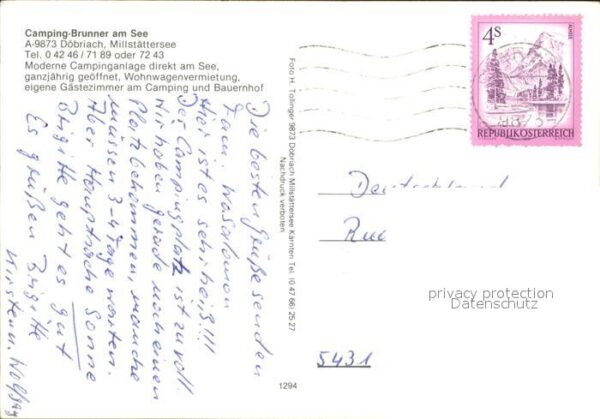 Camping-Brunner am See
A-9873 Döbriach, Millstättersee
Tel. 0 42 46 / 71 89 oder 72 43
Moderne Campinganlage direkt am See,
ganzjährig geöffnet, Wohnwagenvermietung,
eigene Gästezimmer am Camping und Bauernhof
Die besten Grüße senden
Fam.
Hier ist es sehr heiß!!!
Der Campingplatz ist zu voll.
Wir haben gerade noch einen
Platz bekommen, manche
müssen 3-4 Tage warten.
Aber Hauptsache Sonne
Brigitte geht es gut
Es grüßen Brigitte
Kirsten u. Wolfgang
Foto H. Tollinger 9873 Döbriach Millstättersee Kärnten Tel. (0 47 66) 25 27
Nachdruck verboten
1294
4S
ALMSEE
REPUBLIK ÖSTERREICH
Deutschland
5431
privacy protection
Datenschutz